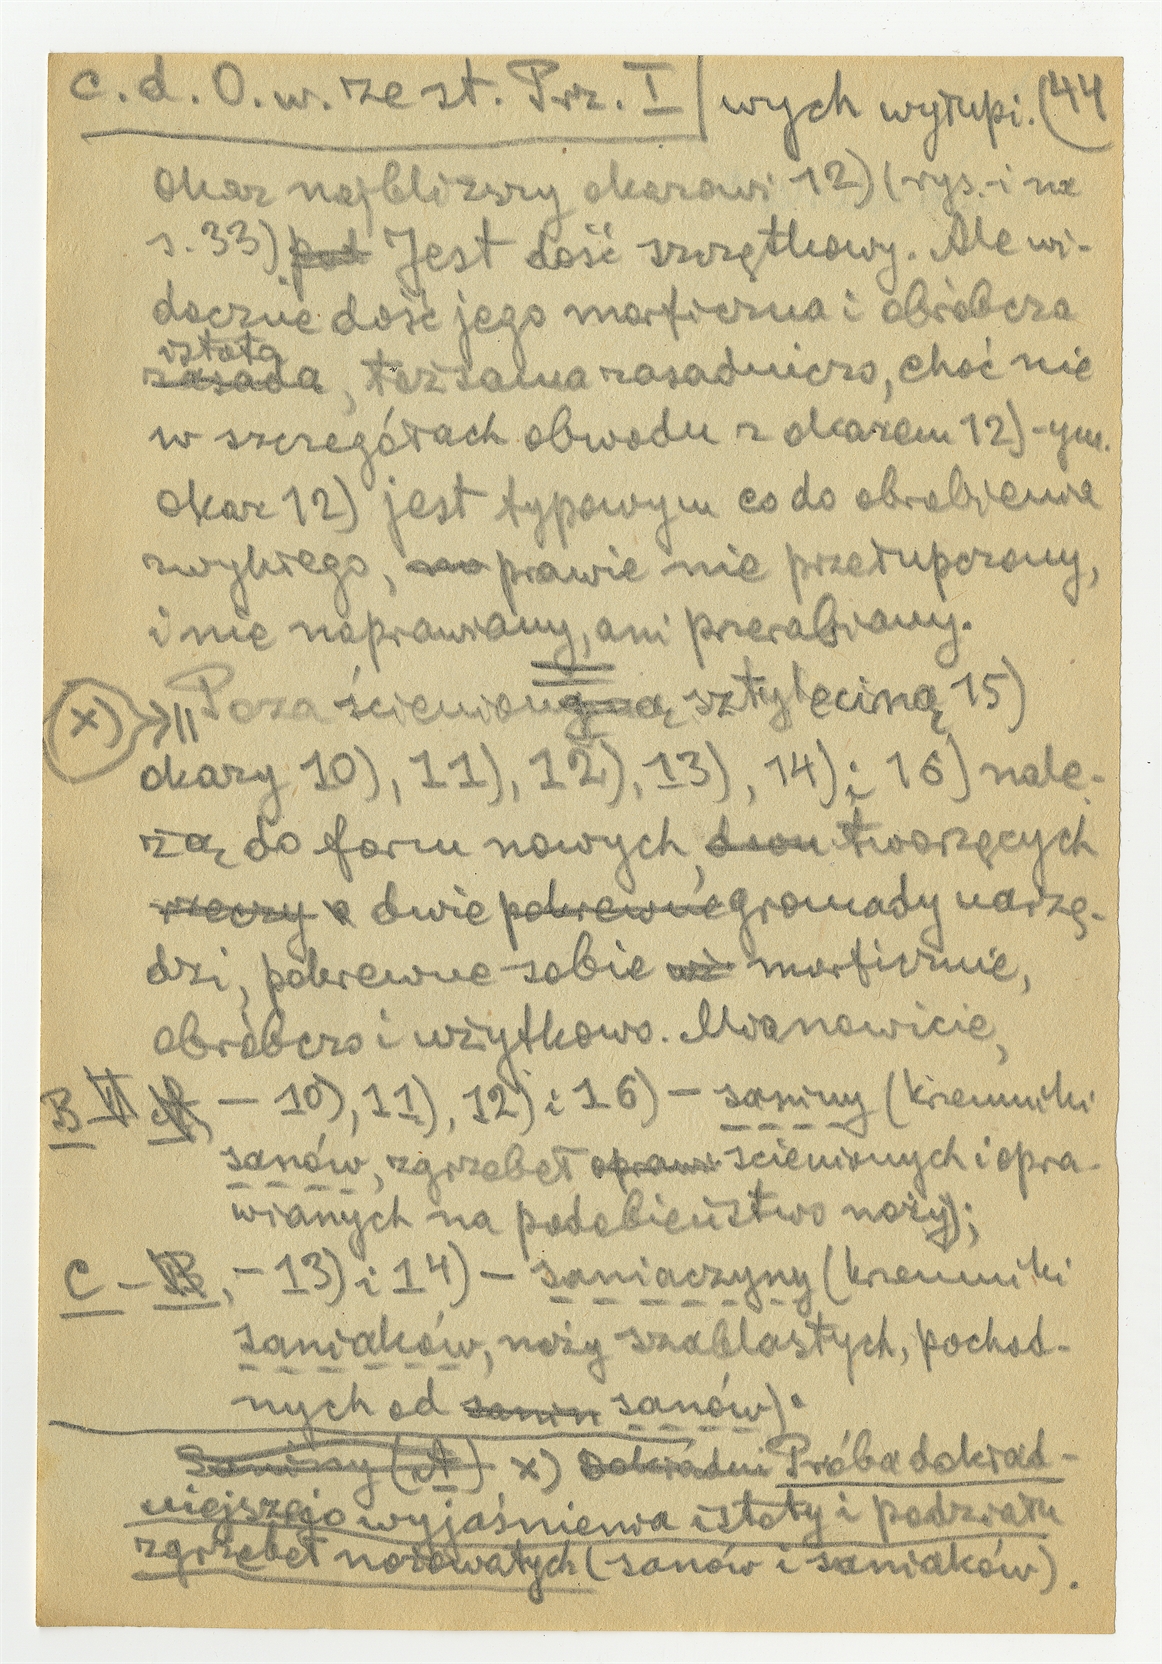 c. d. O. w. zest. Prz. I / wych wyłupi. (44
okaz najbliższy okazowi 12) (rys. i na
s. 33) pod Jest dość szczętkowy. Ale wi-
docznie dość jego morficzna i obróbcza
istota
zasada, tożsama zasadniczo, choć nie
w szczegółach obwodu z okazem 12)-ym.
Okaz 12) jest typowym co do obrobienia
zwykłego, prawie nie przełupczony,
i nie naprawiany, ani przerabiany.
(x) → || Poza ścienioną sztyleciną 15)
okazy 10), 11), 12), 13), 14) i 16) nale-
żą do form nowych, dwom tworzących
rzeczy o dwie pokrewne gromady narzę-
dzi, pokrewne sobie morficznie,
obróbczo i użytkowo. Mianowicie,
B VI A – 10), 11), 12) i 16) – saniny (krzemniki
sanów, zgrzebeł oprawi ścienionych i opra-
wianych na podobieństwo noży);
C – B, – 13) i 14) – saniaczyny (krzemniki
saniaków, noży szablastych, pochod-
nych od sanin sanów).
Saniny (A) x) Dokładni Próba dokład-
niejszego wyjaśnienia istoty i podziału
zgrzebeł nożowatych (sanów i saniaków).